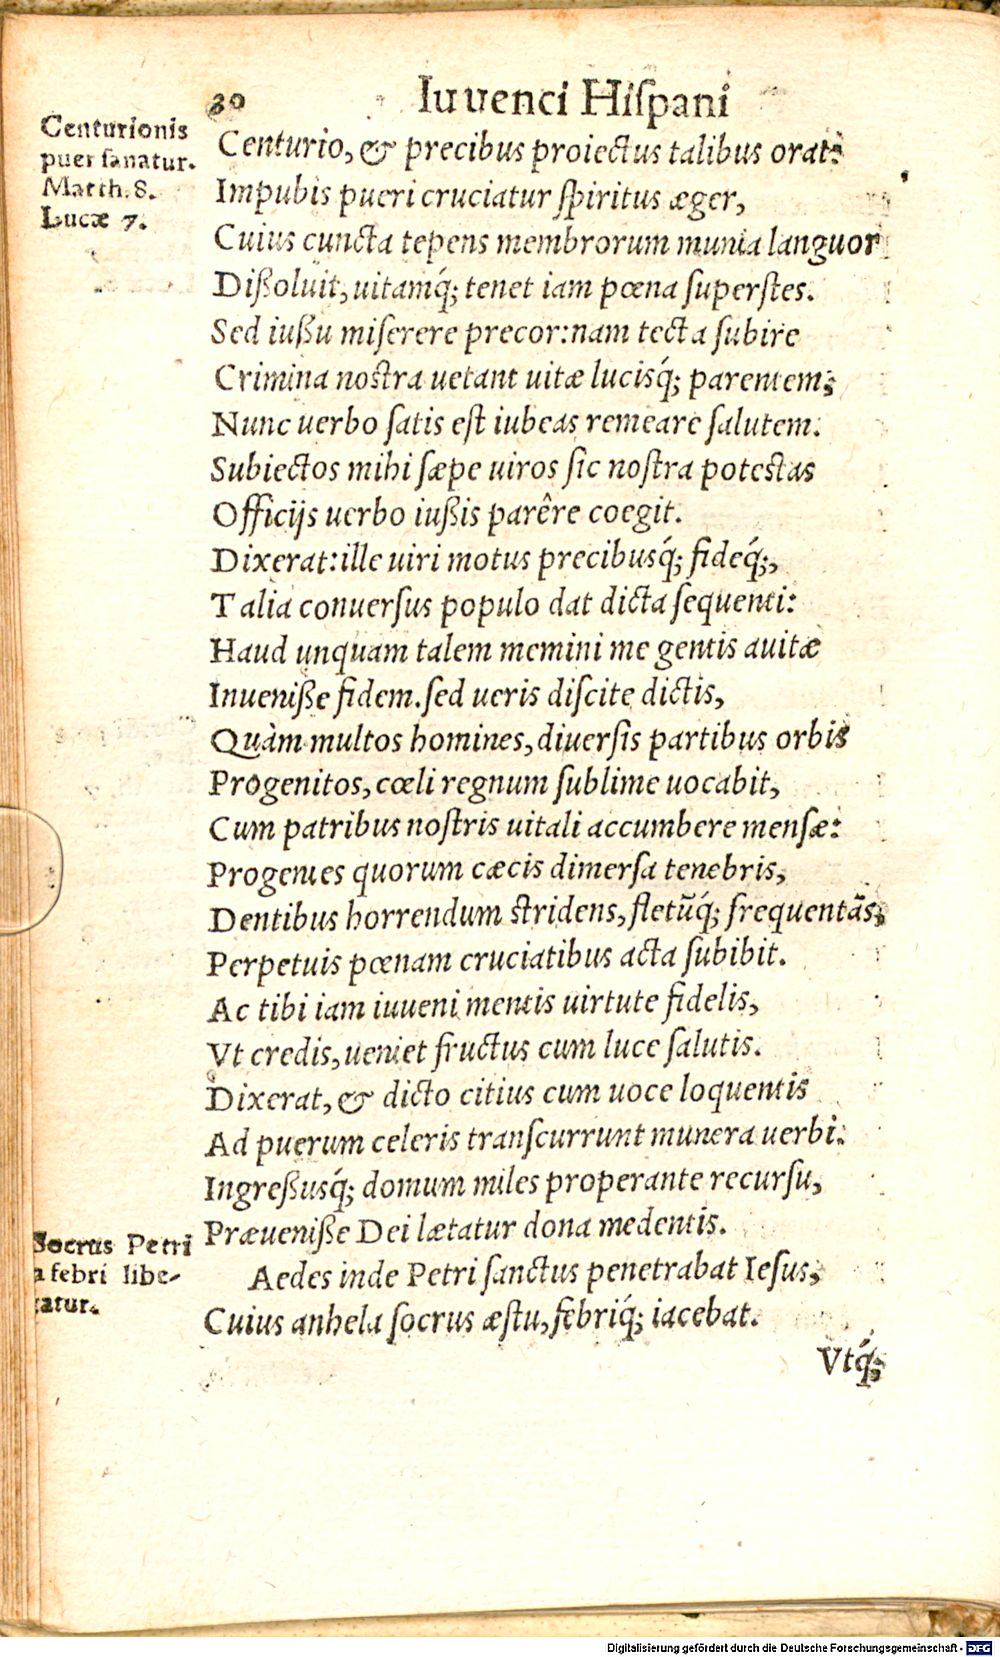 30 Iuuenci Hiſpani
Centurionis
puer ſanatur.
Matth. 8.
Lucæ 7.
Centurio, & precibus proiectus talibus orat:
Impubis pueri cruciatur ſpiritus æger,
Cuius cuncta tepens membrorum munia languor
Dißoluit, uitamq́; tenet iam pœna ſuperſtes.
Sed iußu miſerere precor: nam tecta ſubire
Crimina noſtra uetant uitæ lucisq́; parentem;
Nunc uerbo ſatis eſt iubeas remeare ſalutem.
Subiectos mihi ſæpe uiros ſic noſtra poteſtas
Officijs uerbo iußis parêre coegit.
Dixerat: ille uiri motus precibusq́; fideq́;,
Talia conuerſus populo dat dicta ſequenti:
Haud unquam talem memini me gentis auitæ
Inueniße fidem. ſed ueris diſcite dictis,
Quàm multos homines, diuerſis partibus orbis
Progenitos, cœli regnum ſublime uocabit,
Cum patribus noſtris uitali accumbere menſæ:
Progenies quorum cæcis dimerſa tenebris,
Dentibus horrendum ſtridens, fletũq́; frequentãs;
Perpetuis pœnam cruciatibus acta ſubibit.
Ac tibi iam iuueni mentis uirtute fidelis,
Vt credis, ueniet fructus cum luce ſalutis.
Dixerat, & dicto citius cum uoce loquentis
Ad puerum celeris tranſcurrunt munera uerbi.
Ingreßusq́; domum miles properante recurſu,
Præueniße Dei lætatur dona medentis.
Socrus Petri
a febri libe-
ratur.
Aedes inde Petri ſanctus penetrabat Ieſus,
Cuius anhela ſocrus æſtu, febriq́; iacebat.
Vtq́;
Digitalisierung gefördert durch die Deutsche Forschungsgemeinschaft - DFG